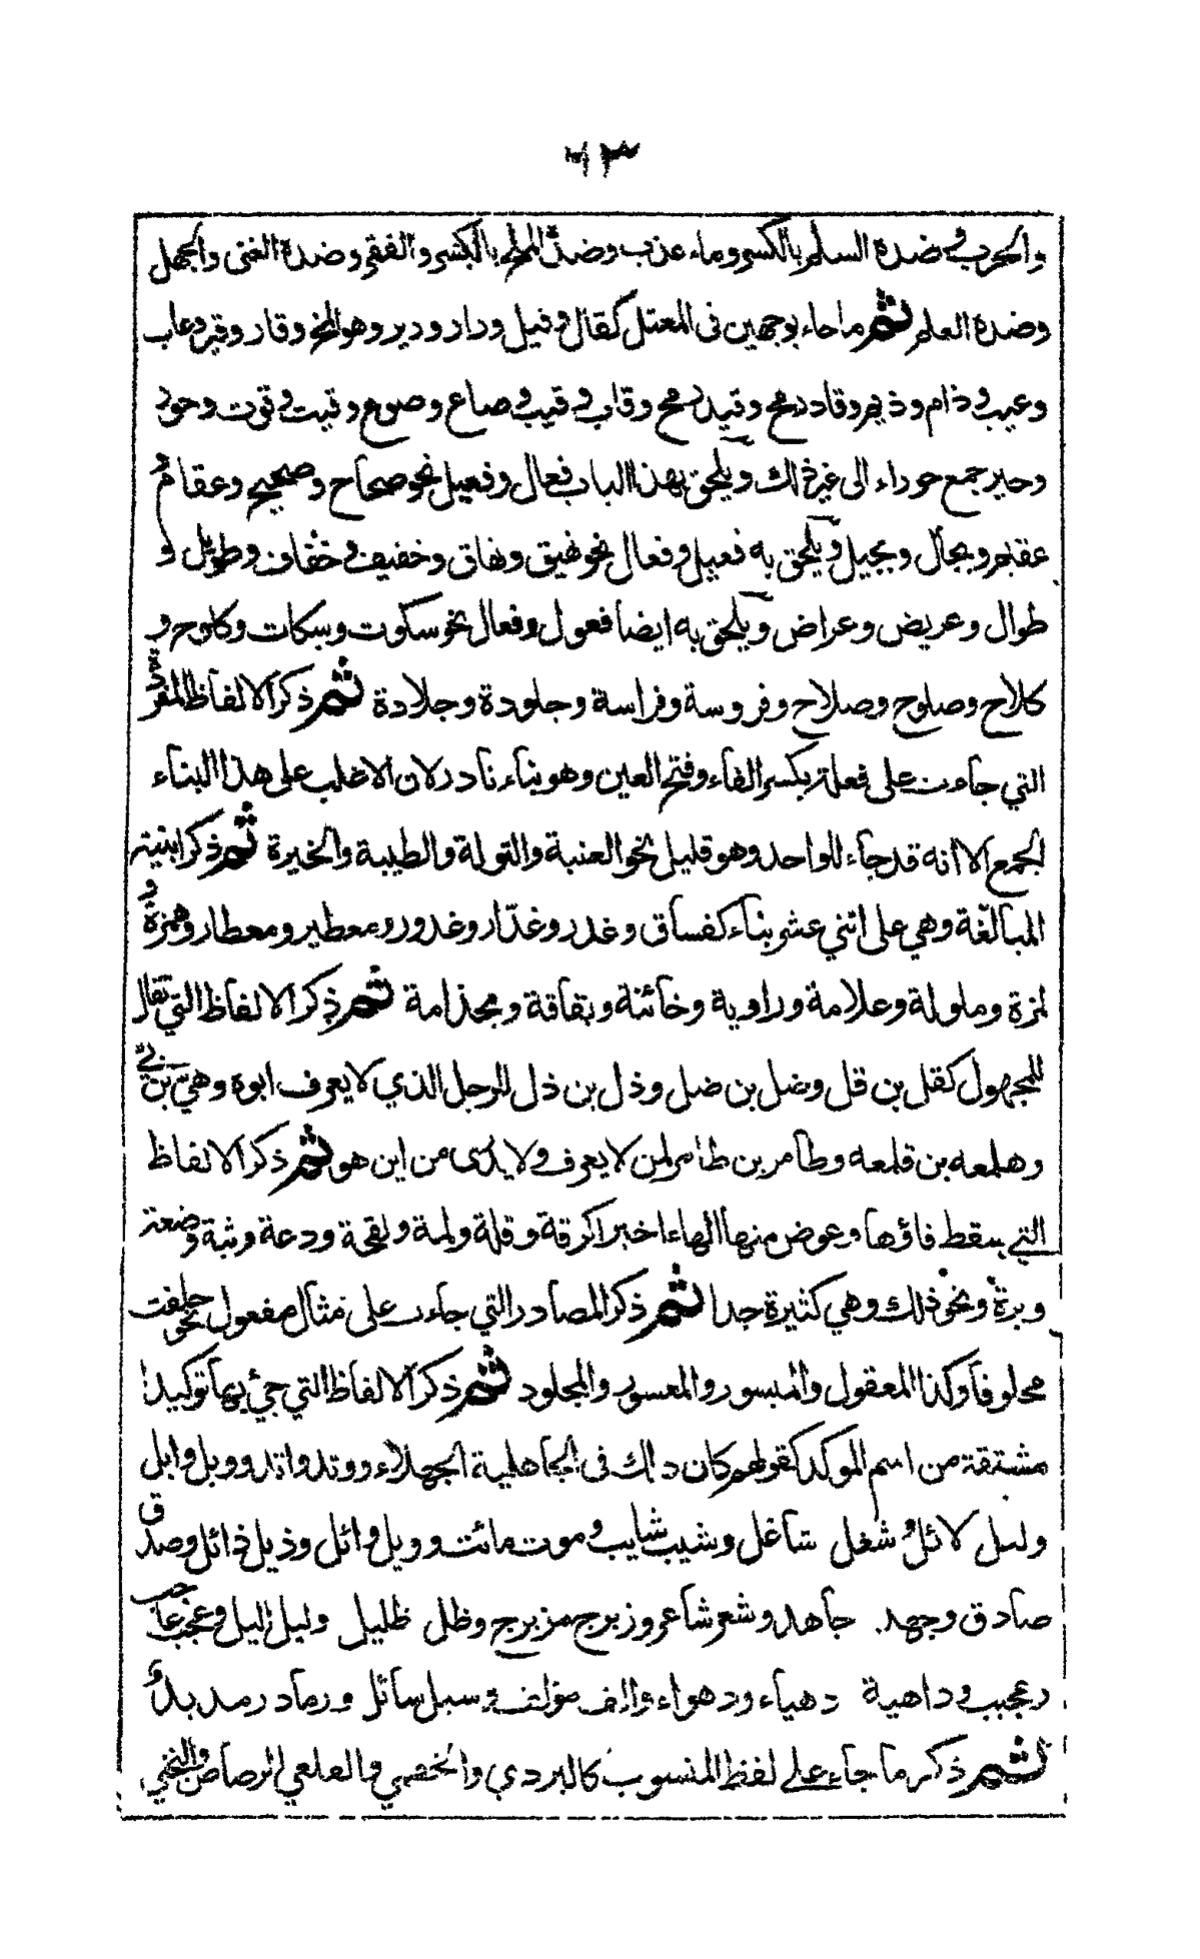 ٦٣
والحرب وضده السلم بالكسر وماء عذب وضده الملح بالكسر والفقر وضده الغنى والجهل
وضده العلم ثم ما جاء بوجهين فى المعتل كقال وقيل ودار ودير وهو المخ وقار وقير وعاب
وعيب وذام وذيم وقاد رمح وقيد رمح وقاب وقيب وصاع وصوع وقيت وقوت وحور
وحير جمع حوراء الى غير ذلك ويلحق بهذا الباب فعال وفعيل نحو صحاح وصحيح وعقام و
عقيم وبجال وبجيل ويلحق به فعيل وفعال نحو نهيق ونهاق وخفيف وخفاف وطويل و
طوال وعريض وعراض ويلحق به ايضا فعول وفعال نحو سكوت وسكات وكلوح و
كلاح وصلوح وصلاح وفروسة وفراسة وجلودة وجلادة ثم ذكر الالفاظ المفردة
التي جاءت على فعلة بكسر الفاء وفتح العين وهو بناء نادر لان الاغلب على هذا البناء
الجمع الا انه قد جاء للواحد وهو قليل نحو العنبة والتولة والطيبة والخيرة ثم ذكر ابنية
المبالغة وهي على اثني عشر بناء كفساق وغدر وغدّار وغدور ومعطير ومعطار وهمزة و
لمزة وملولة وعلامة وراوية وخائنة وبقاقة ومجذامة ثم ذكر الالفاظ التي تقال
للمجهول كقل بن قل وضل بن ضل وذل بن ذل للرجل الذي لا يعرف ابوه وهيّ بن بيّ
وهلمعه بن قلمعه وطامر بن طامر لمن لا يعرف ولا يدرى من اين هو ثم ذكر الالفاظ
التي سقط فاؤها وعوض منها الهاء اخيرا كرقة وقلة ولمة ولقحة ودعة وثبة وضعة
وبرة ونحو ذلك وهي كثيرة جدا ثم ذكر المصادر التي جاءت على مثال مفعول نحو حلفت
محلوفا وكذا المعقول والميسور والمعسور والمجلود ثم ذكر الالفاظ التي جئ بها توكيدا
مشتقة من اسم المؤكد كقولهم كان ذلك فى الجاهلية الجهلاء ووتد واتد ووبل وابل
وليل لائل وشغل شاغل وشيب شايب وموت مائت وويل وائل وذيل ذائل وصدق
صادق وجهد جاهد وشعر شاعر وزبرج مزبرج وظل ظليل وليل اليل وعجب عاجب
وعجيب وداهية دهياء ودهواء والف مؤلف وسبل سائل ورماد رمدد
ثم ذكر ما جاء على لفظ المنسوب كالبردي والخصي والعلعي الرصاص